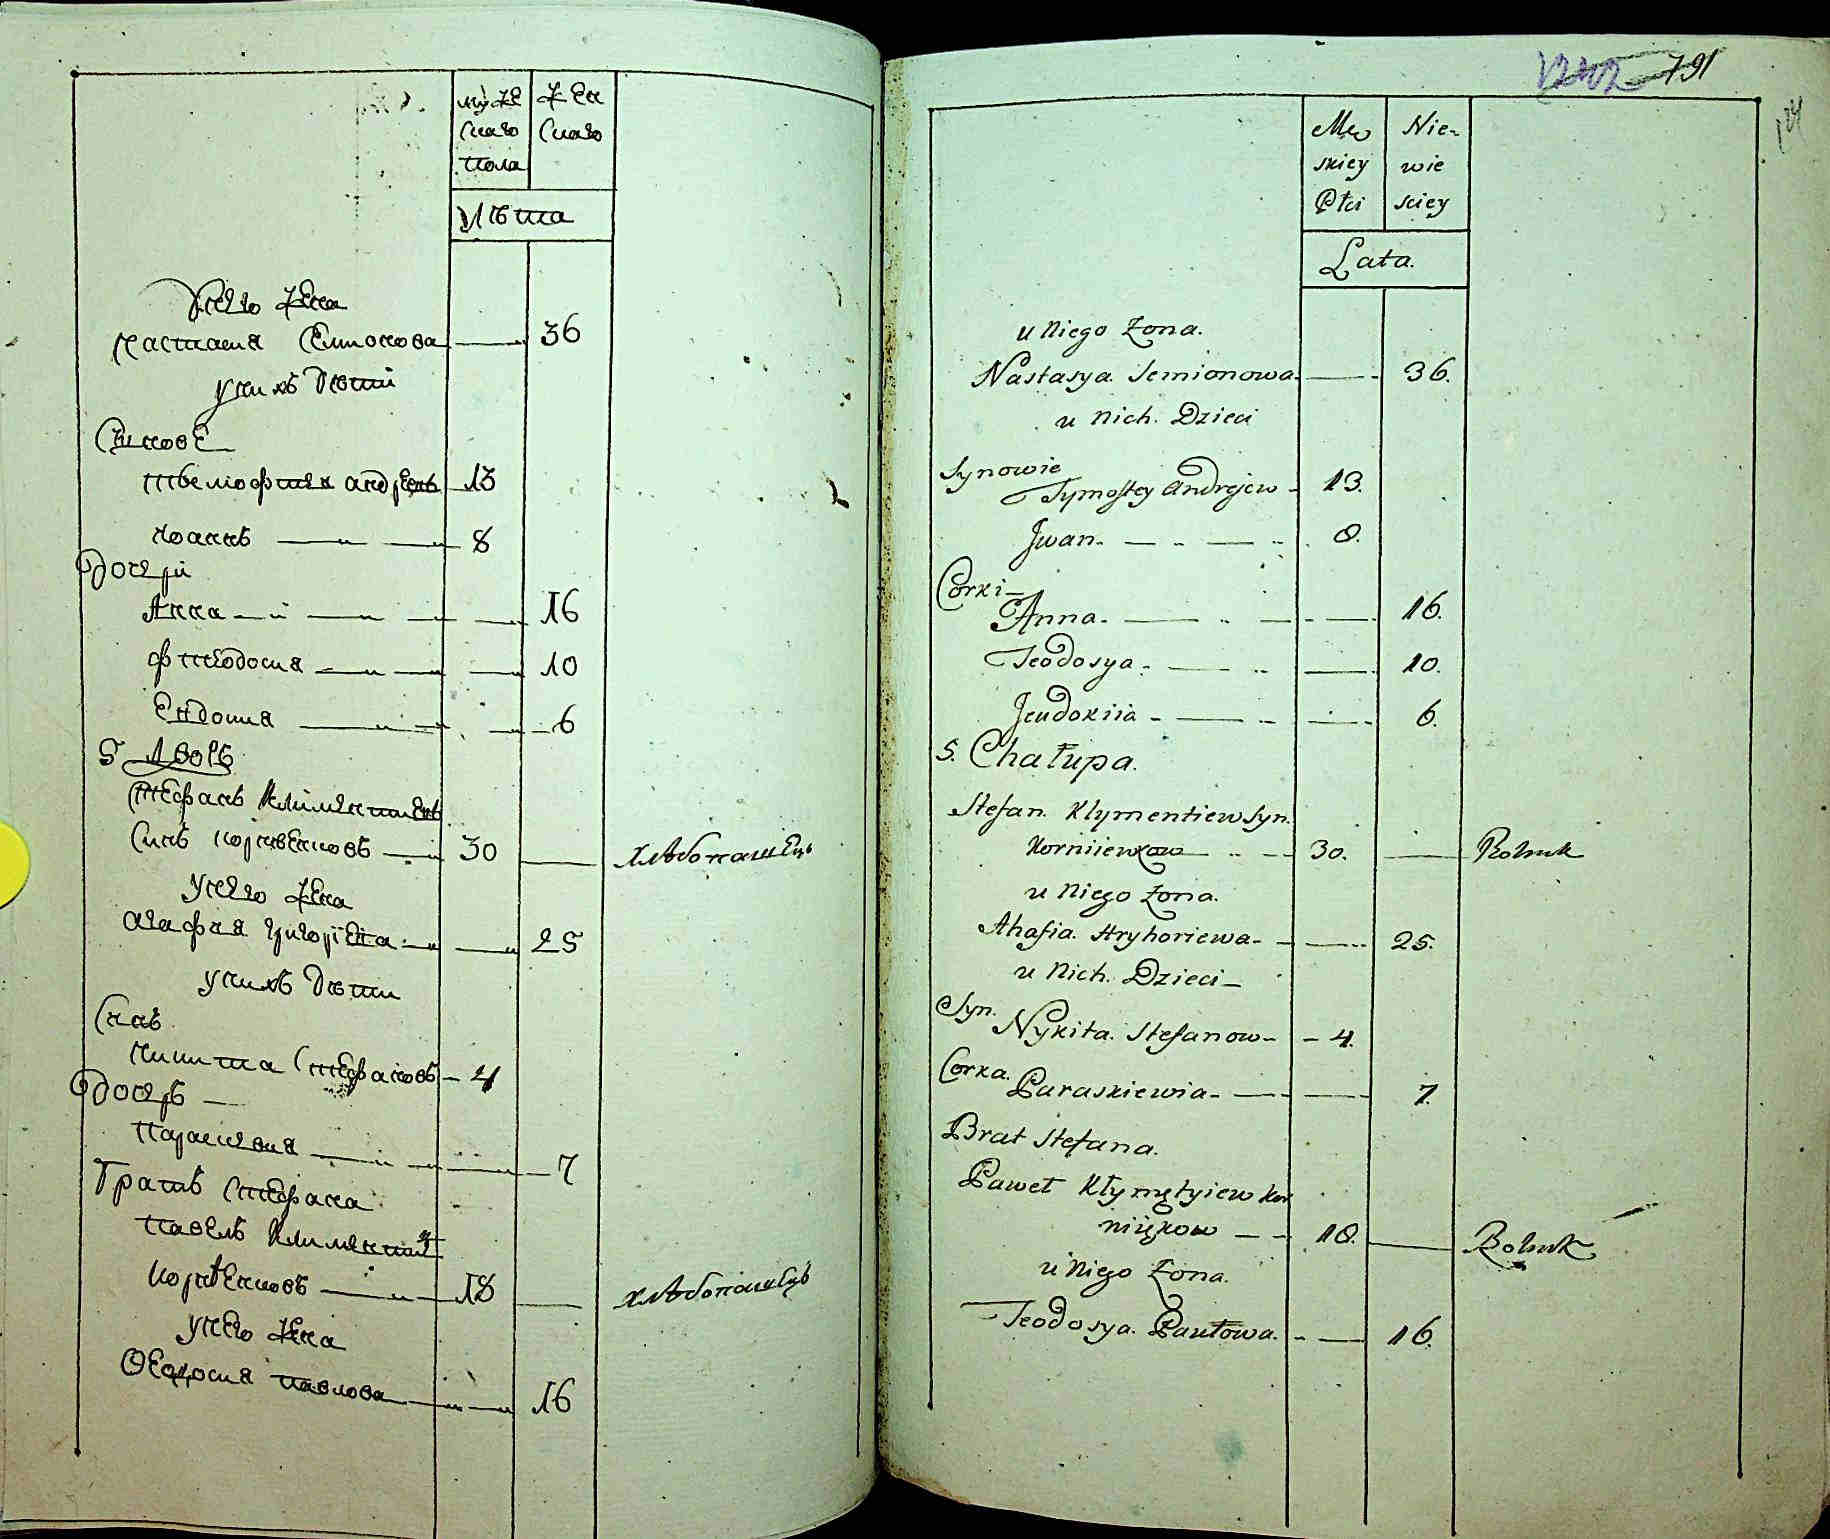 муже
скаго
пола
жен
скаго
Лѣта
У него жена
Настасия Семионова 36
у них дѣти
Синове
Тѣмофтей Андреевъ 13
Иоаннъ 8
Дочери
Анна 16
Фтеодосия 10
Евдокия 6
5 Дворъ
Стефанъ Климянтиевъ
Синъ Корнѣенковъ 30 хлѣбопашецъ
у него жена
Агафия Григориева 25
у нихъ дѣти
Синъ
Никита Стефановъ 4
Дочеръ
Параскевия 7
Братъ Стефана
Павелъ Климянтиев
Корнѣенковъ 18 хлѣбопашецъ
у него жена
Феодосия Павлова 16
791
Mę
skiey
Płci
Nie-
wie
sciey
Lata.
u Niego Żona.
Nastasya. Semionowa. 36.
u Nich. Dzieci
Synowie
Tymoftey Andrejew 13.
Jwan. 8.
Corki
Anna. 16.
Teodosya. 10.
Jeudokiia 6.
5. Chałupa.
Stefan. Klymentiew Syn.
Korniienkow 30. Rolnik
u Niego Żona.
Ahafia. Hryhoriewa 25.
u Nich. Dzieci
Syn.
Nykita. Stefanow 4.
Corka.
Paraskiewia 7.
Brat Stefana.
Paweł Kłymętyiew Kor
niiękow 18. Rolnik
u Niego Żona.
Teodosya. Pawłowa. 16.